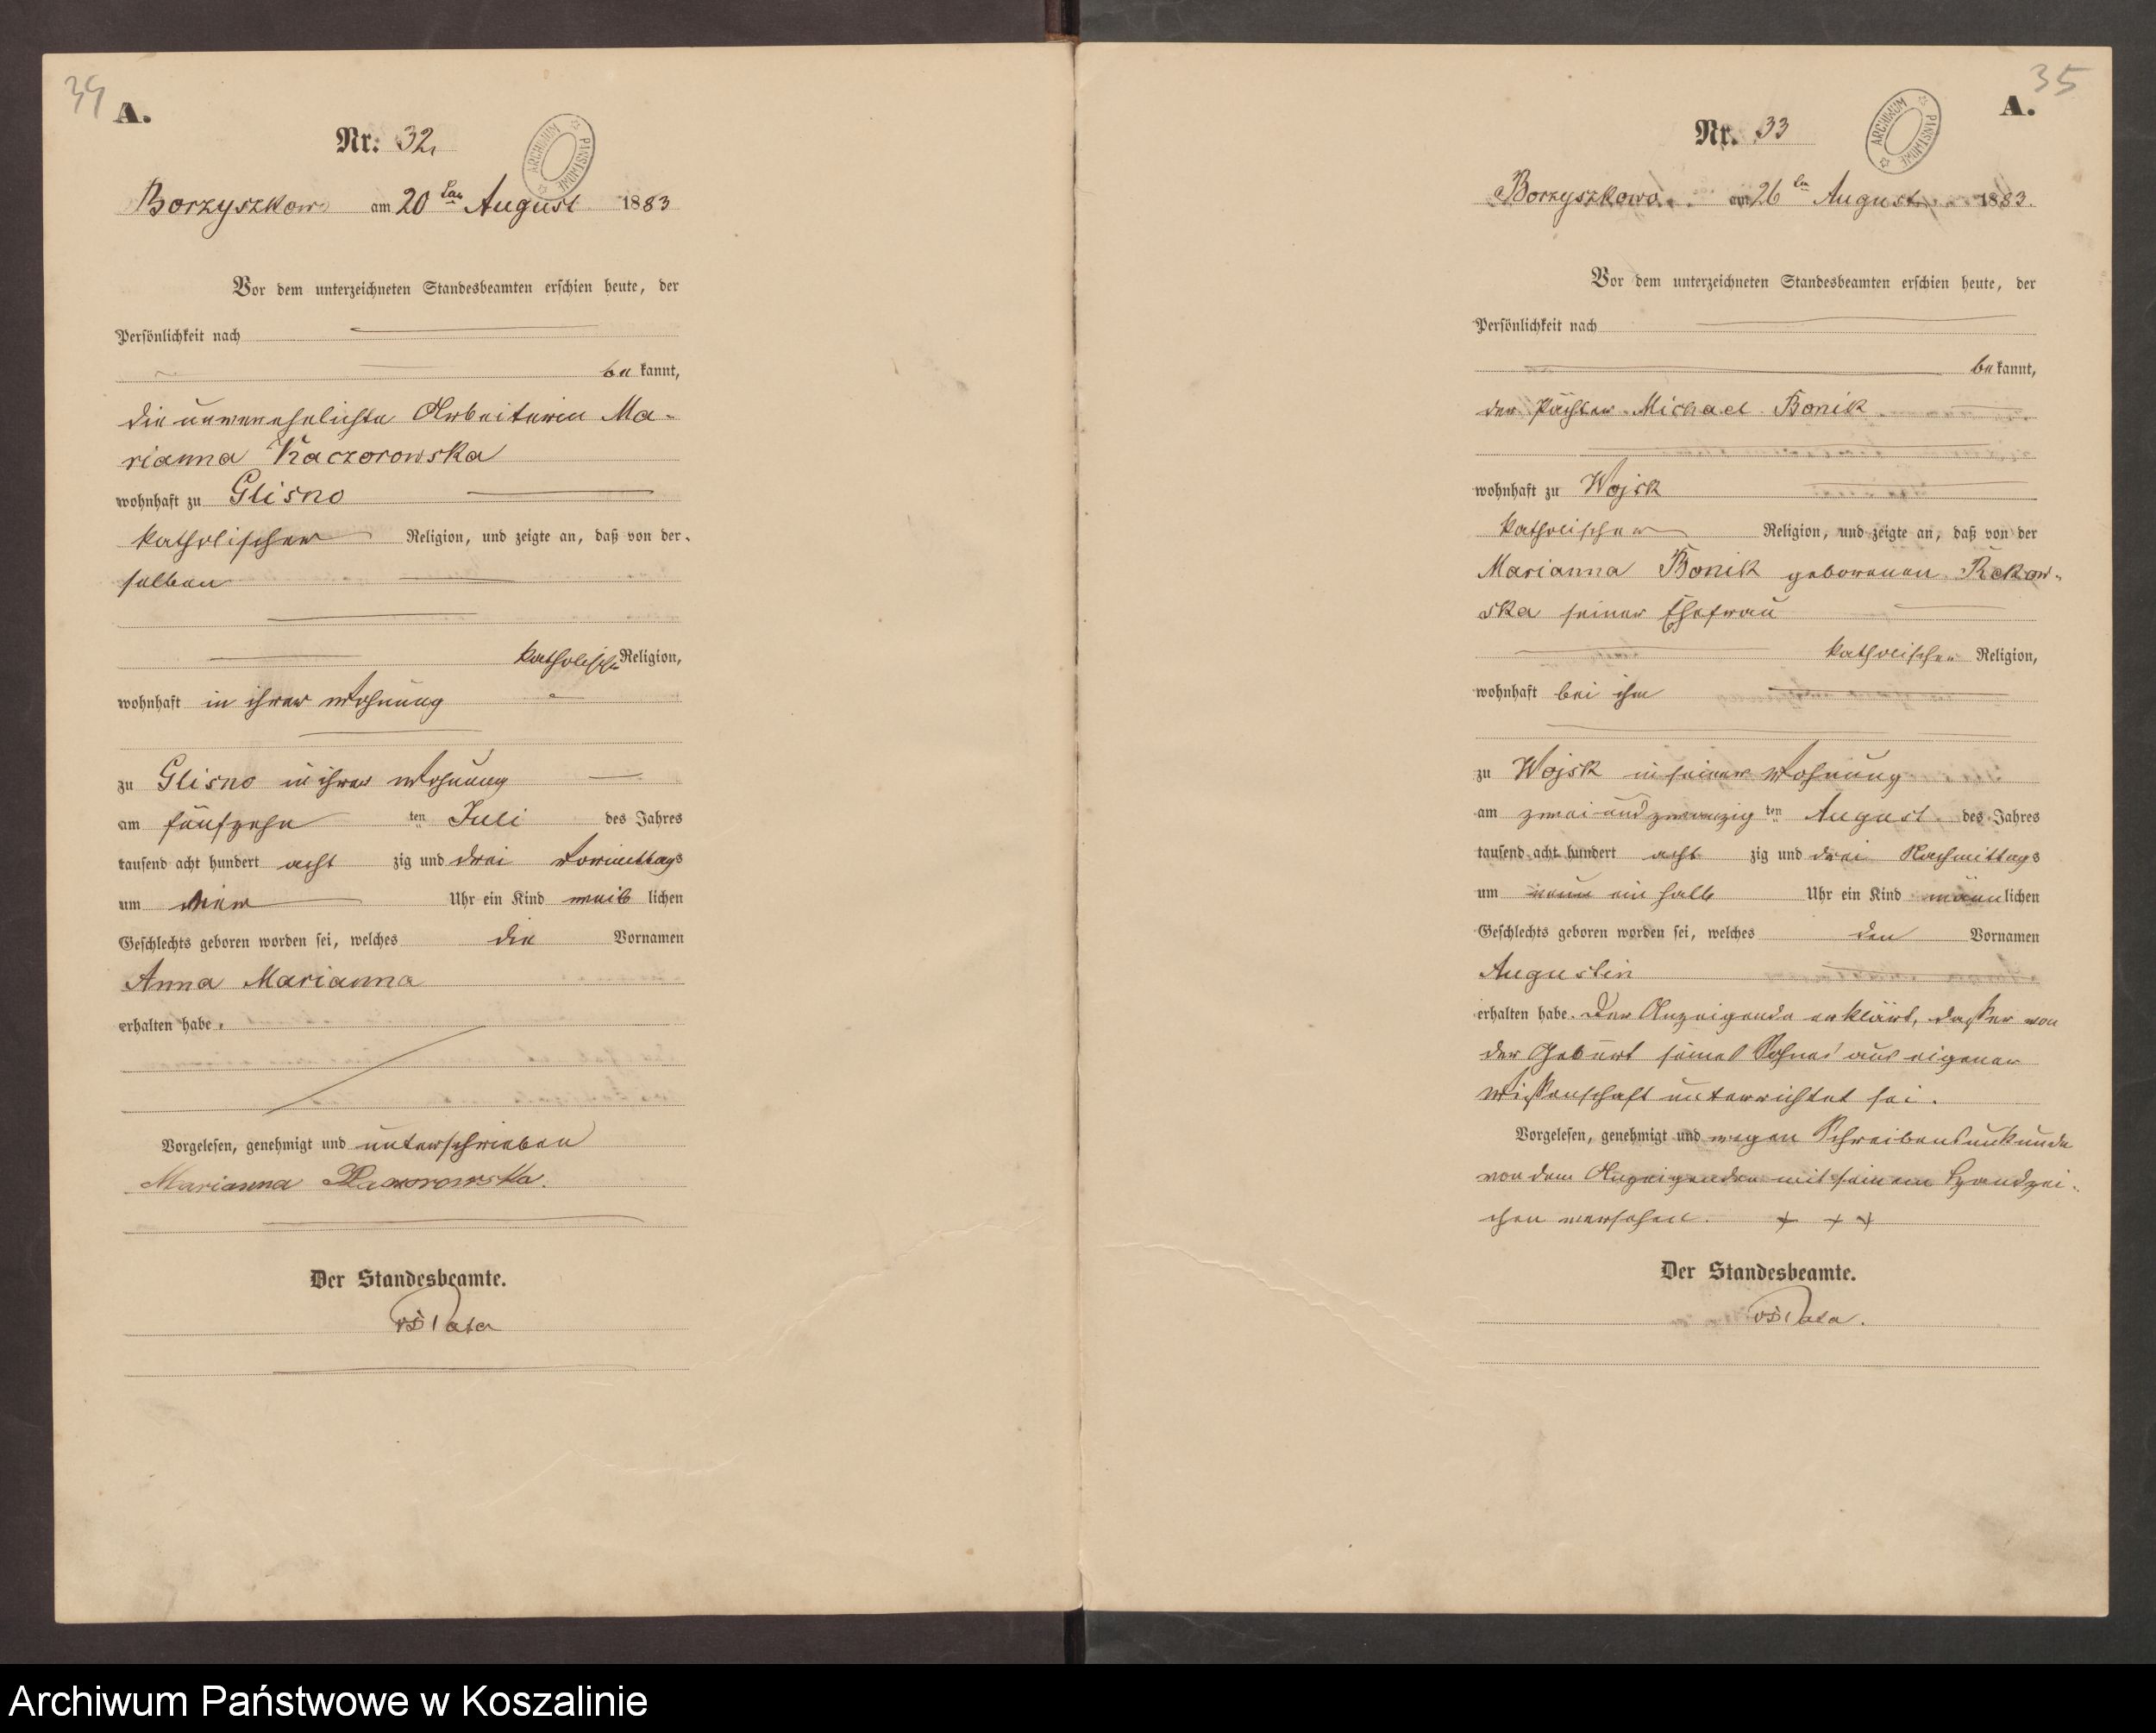 34
A.
Nr. 32.
ARCHIWUM PAŃSTWOWE
Borzyszkowo am 20 ten August 1883
Vor dem unterzeichneten Standesbeamten erschien heute, der
Persönlichkeit nach
be kannt,
die unverehelichte Arbeiterin Ma-
rianna Kaczorowska
wohnhaft zu Glisno
katholischer Religion, und zeigte an, daß von der-
selben
katholischer Religion,
wohnhaft in ihrer Wohnung
zu Glisno in ihrer Wohnung
am fünfzehn ten Juli des Jahres
tausend acht hundert acht zig und drei Vormittags
um vier Uhr ein Kind weib lichen
Geschlechts geboren worden sei, welches die Vornamen
Anna Marianna
erhalten habe.
Vorgelesen, genehmigt und unterschrieben
Marianna
Der Standesbeamte.
35
A.
Nr. 33
ARCHIWUM PAŃSTWOWE
Borzyszkowo am 26 ten August 1883.
Vor dem unterzeichneten Standesbeamten erschien heute, der
Persönlichkeit nach
be kannt,
der Pächter Michael Bonik
wohnhaft zu Wojsk
katholischer Religion, und zeigte an, daß von der
Marianna Bonik geborenen Rekow-
ska seiner Ehefrau
katholischer Religion,
wohnhaft bei ihm
zu Wojsk in seiner Wohnung
am zwei und zwanzig ten August des Jahres
tausend acht hundert acht zig und drei Nachmittags
um neun ein halb Uhr ein Kind männ lichen
Geschlechts geboren worden sei, welches den Vornamen
Augustin
erhalten habe. Der Anzeigende erklärt, daß er von
der Geburt seines Sohnes aus eigener
Wissenschaft unterrichtet sei.
Vorgelesen, genehmigt und wegen Schreibensunkunde
von dem Anzeigenden mit seinem Handzei-
chen versehen. + + +
Der Standesbeamte.
Archiwum Państwowe w Koszalinie